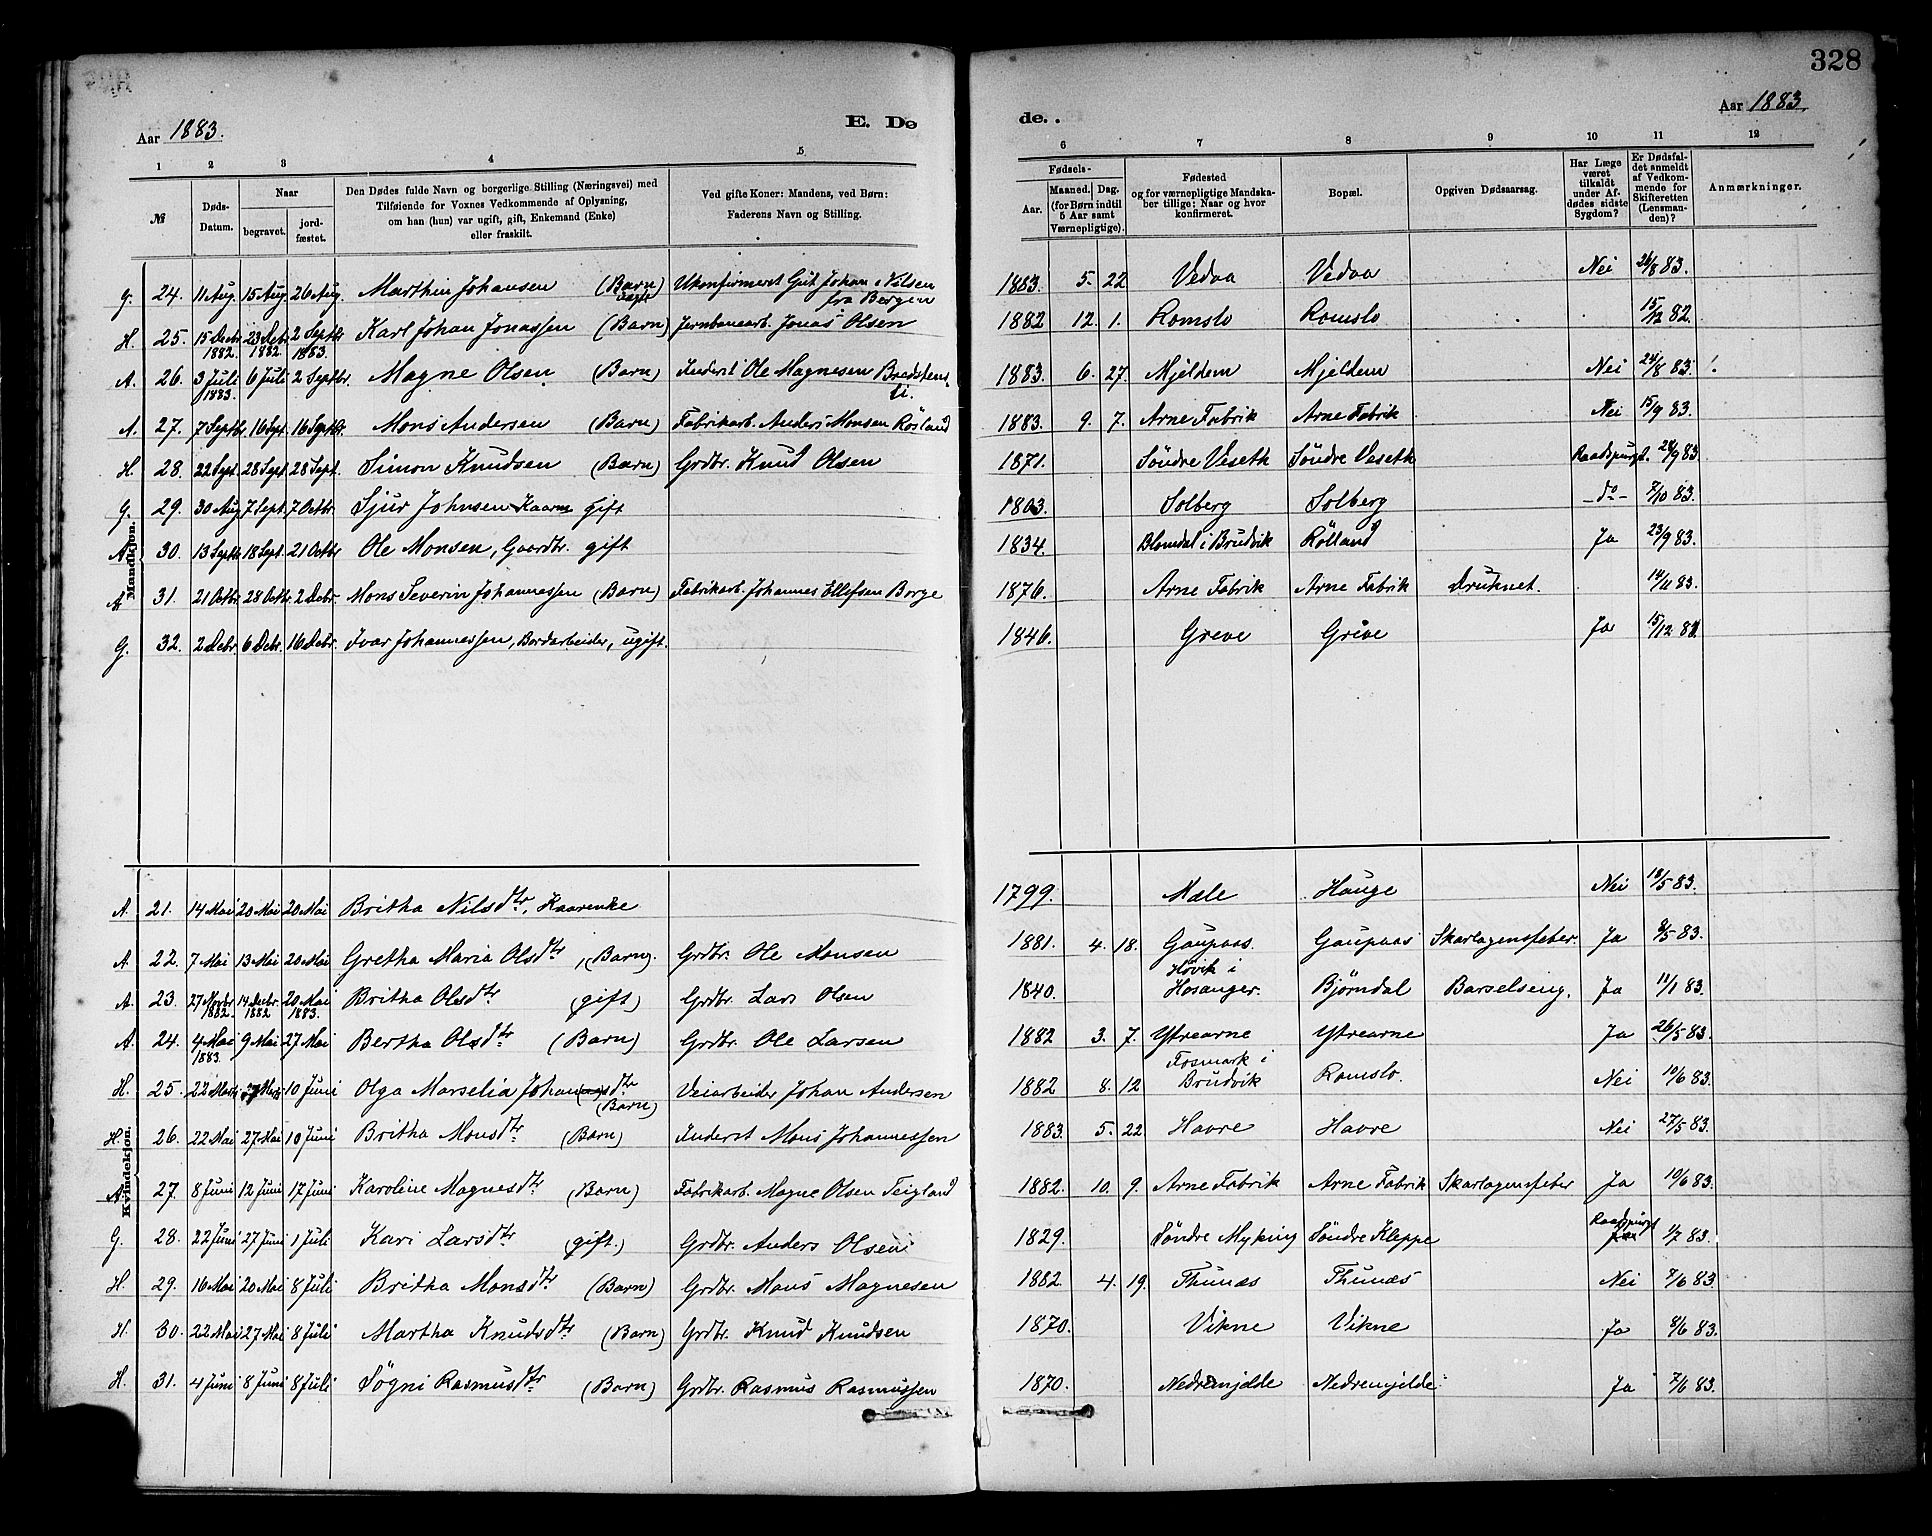 328
Aar 1883.
E. Dø
de. .
Aar 1883.
1 2 3 4 5 6 7 8 9 10 11 12
№
Døds-Datum.
Naar
begravet.
jord-fæstet.
Den Dødes fulde Navn og borgerlige Stilling (Næringsvei) med
Tilføiende for Voxnes Vedkommende af Oplysning,
om han (hun) var ugift, gift, Enkemand (Enke)
eller fraskilt.
Ved gifte Koner: Mandens, ved Børn:
Faderens Navn og Stilling.
Fødsels-
Aar.
Maaned. Dag.
(for Børn indtil
5 Aar samt
Værnepligtige).
Fødested
og for værnepligtige Mandska-
ber tillige: Naar og hvor
konfirmeret.
Bopæl.
Opgiven Dødsaarsag.
Har Læge
været
tilkaldt
under Af-
dødes sidste
Sygdom?
Er Dødsfal-
det anmeldt
af Vedkom-
mende for
Skifteretten
(Lensman-
den)?
Anmærkninger.
Mandkjøn.
G. 24. 11 Aug. 15 Aug 26 Aug. Marthin Johansen (Barn) Ukonfirmeret Gut Johan Nilsen fra Bergen 1883 5. 22 Vedaa Vedaa Nei 26/8 83.
H. 25. 15 Decbr 1882. 23 Debr 1882 2 Septbr 1883. Karl Johan Jonassen (Barn) Jernbanearb. Jonas Olsen 1882 12. 1. Romslo Romslo 15/12 82.
A. 26. 3 Juli 1883. 6 Juli 2 Septbr. Magne Olsen (Barn) Inderst Ole Magnesen 1883. 6. 27. Mjeldem Mjeldem Nei 24/8 83.
A. 27. 7 Septbr 16 Sept. 16 Septbr. Mons Andersen (Barn) Fabrikarb. Anders Monsen Rösland 1883. 9. 7. Arne Fabrik Arne Fabrik Nei 15/9 83.
H. 28. 22 Sept. 28 Sept. 28 Sept. Simon Knudsen (Barn) Grdbr. Knud Olsen 1871. Söndre Veseth Söndre Veseth Raadspurgt. 28/9 83.
G. 29. 30 Aug 7 Sept. 7 Octbr. Sjur Johnsen Kaarm. gift 1803. Solberg Solberg -do- 7/10 83.
A. 30. 13 Septbr 18 Sept. 21 Octbr Ole Monsen, Gaardbr. gift 1834. Blomdal i Brudvik Rölland Ja 23/9 83.
A. 31. 21 Octbr. 28 Octbr. 2 Debr. Mons Severin Johannessen (Barn) Fabrikarb. Johannes Ellefsen Borge 1876. Arne Fabrik Arne Fabrik Druknet. 14/11 83.
G. 32. 2 Debr. 6 Debr. 16 Debr. Ivar Johannessen, Bordarbeider, ugift. 1846. Greve Greve Ja 15/12 83.
Kvindekjøn.
A. 21. 14 Mai 20 Mai 20 Mai Britha Nilsdtr, Kaarenke 1799. Mæle Hauge Nei 18/5 83.
A. 22. 7 Mai 13 Mai 20 Mai Gretha Maria Olsdtr, (Barn). Grdbr. Ole Monsen 1881. 4. 18. Gaupaas. Gaupaas Skarlagensfeber. Ja 9/5 83.
A. 23. 27 Novbr 1882. 14 Decbr. 1882 20 Mai 1883. Britha Olsdtr (gift) Grdbr. Lars Olsen 1840. Høvik i Hosanger. Björndal Barselseng. Ja 11/1 83.
A. 24. 4 Mai 1883. 9 Mai 27 Mai Bertha Olsdtr. (Barn) Grdbr. Ole Larsen 1882 3. 7. Ytrearne Ytrearne Ja 26/5 83.
H. 25. 22 Marts 27 Marts 10 Juni Olga Marselia Johansdtr (Barn) Veiarbeider Johan Andersen 1882 8. 12 Fosmark i Brudvik Romslo. Nei 10/6 83.
H. 26. 22 Mai 27 Mai 10 Juni Britha Monsdtr. (Barn) Inderst Mons Johannessen 1883. 5. 22. Havre Havre Nei 27/5 83.
A. 27. 8 Juni 12 Juni 17 Juni Karoline Magnesdtr (Barn) Fabrikarb. Magne Olsen Teigland 1882. 10. 9. Arne Fabrik Arne Fabrik Skarlagensfeber Ja 10/6 83.
G. 28. 22 Juni 27 Juni 1 Juli Kari Larsdtr (gift.) Grdbr. Anders Olsen 1829. Söndre Myking Söndre Kleppe Raadspurgt 1/7 83.
H. 29. 16 Mai 20 Mai 8 Juli Britha Monsdtr (Barn) Grdbr. Mons Magnesen 1882. 4. 19. Thunæs Thunæs Nei 7/6 83.
H. 30. 22 Mai 27 Mai 8 Juli Martha Knudsdtr (Barn) Grdbr. Knud Knudsen 1870. Vikne Vikne Ja 8/6 83.
H. 31. 4 Juni 8 Juni 8 Juli Sögni Rasmusdtr (Barn) Grdbr. Rasmus Rasmussen 1870. Nedremjelde Nedremjelde Ja 7/6 83.